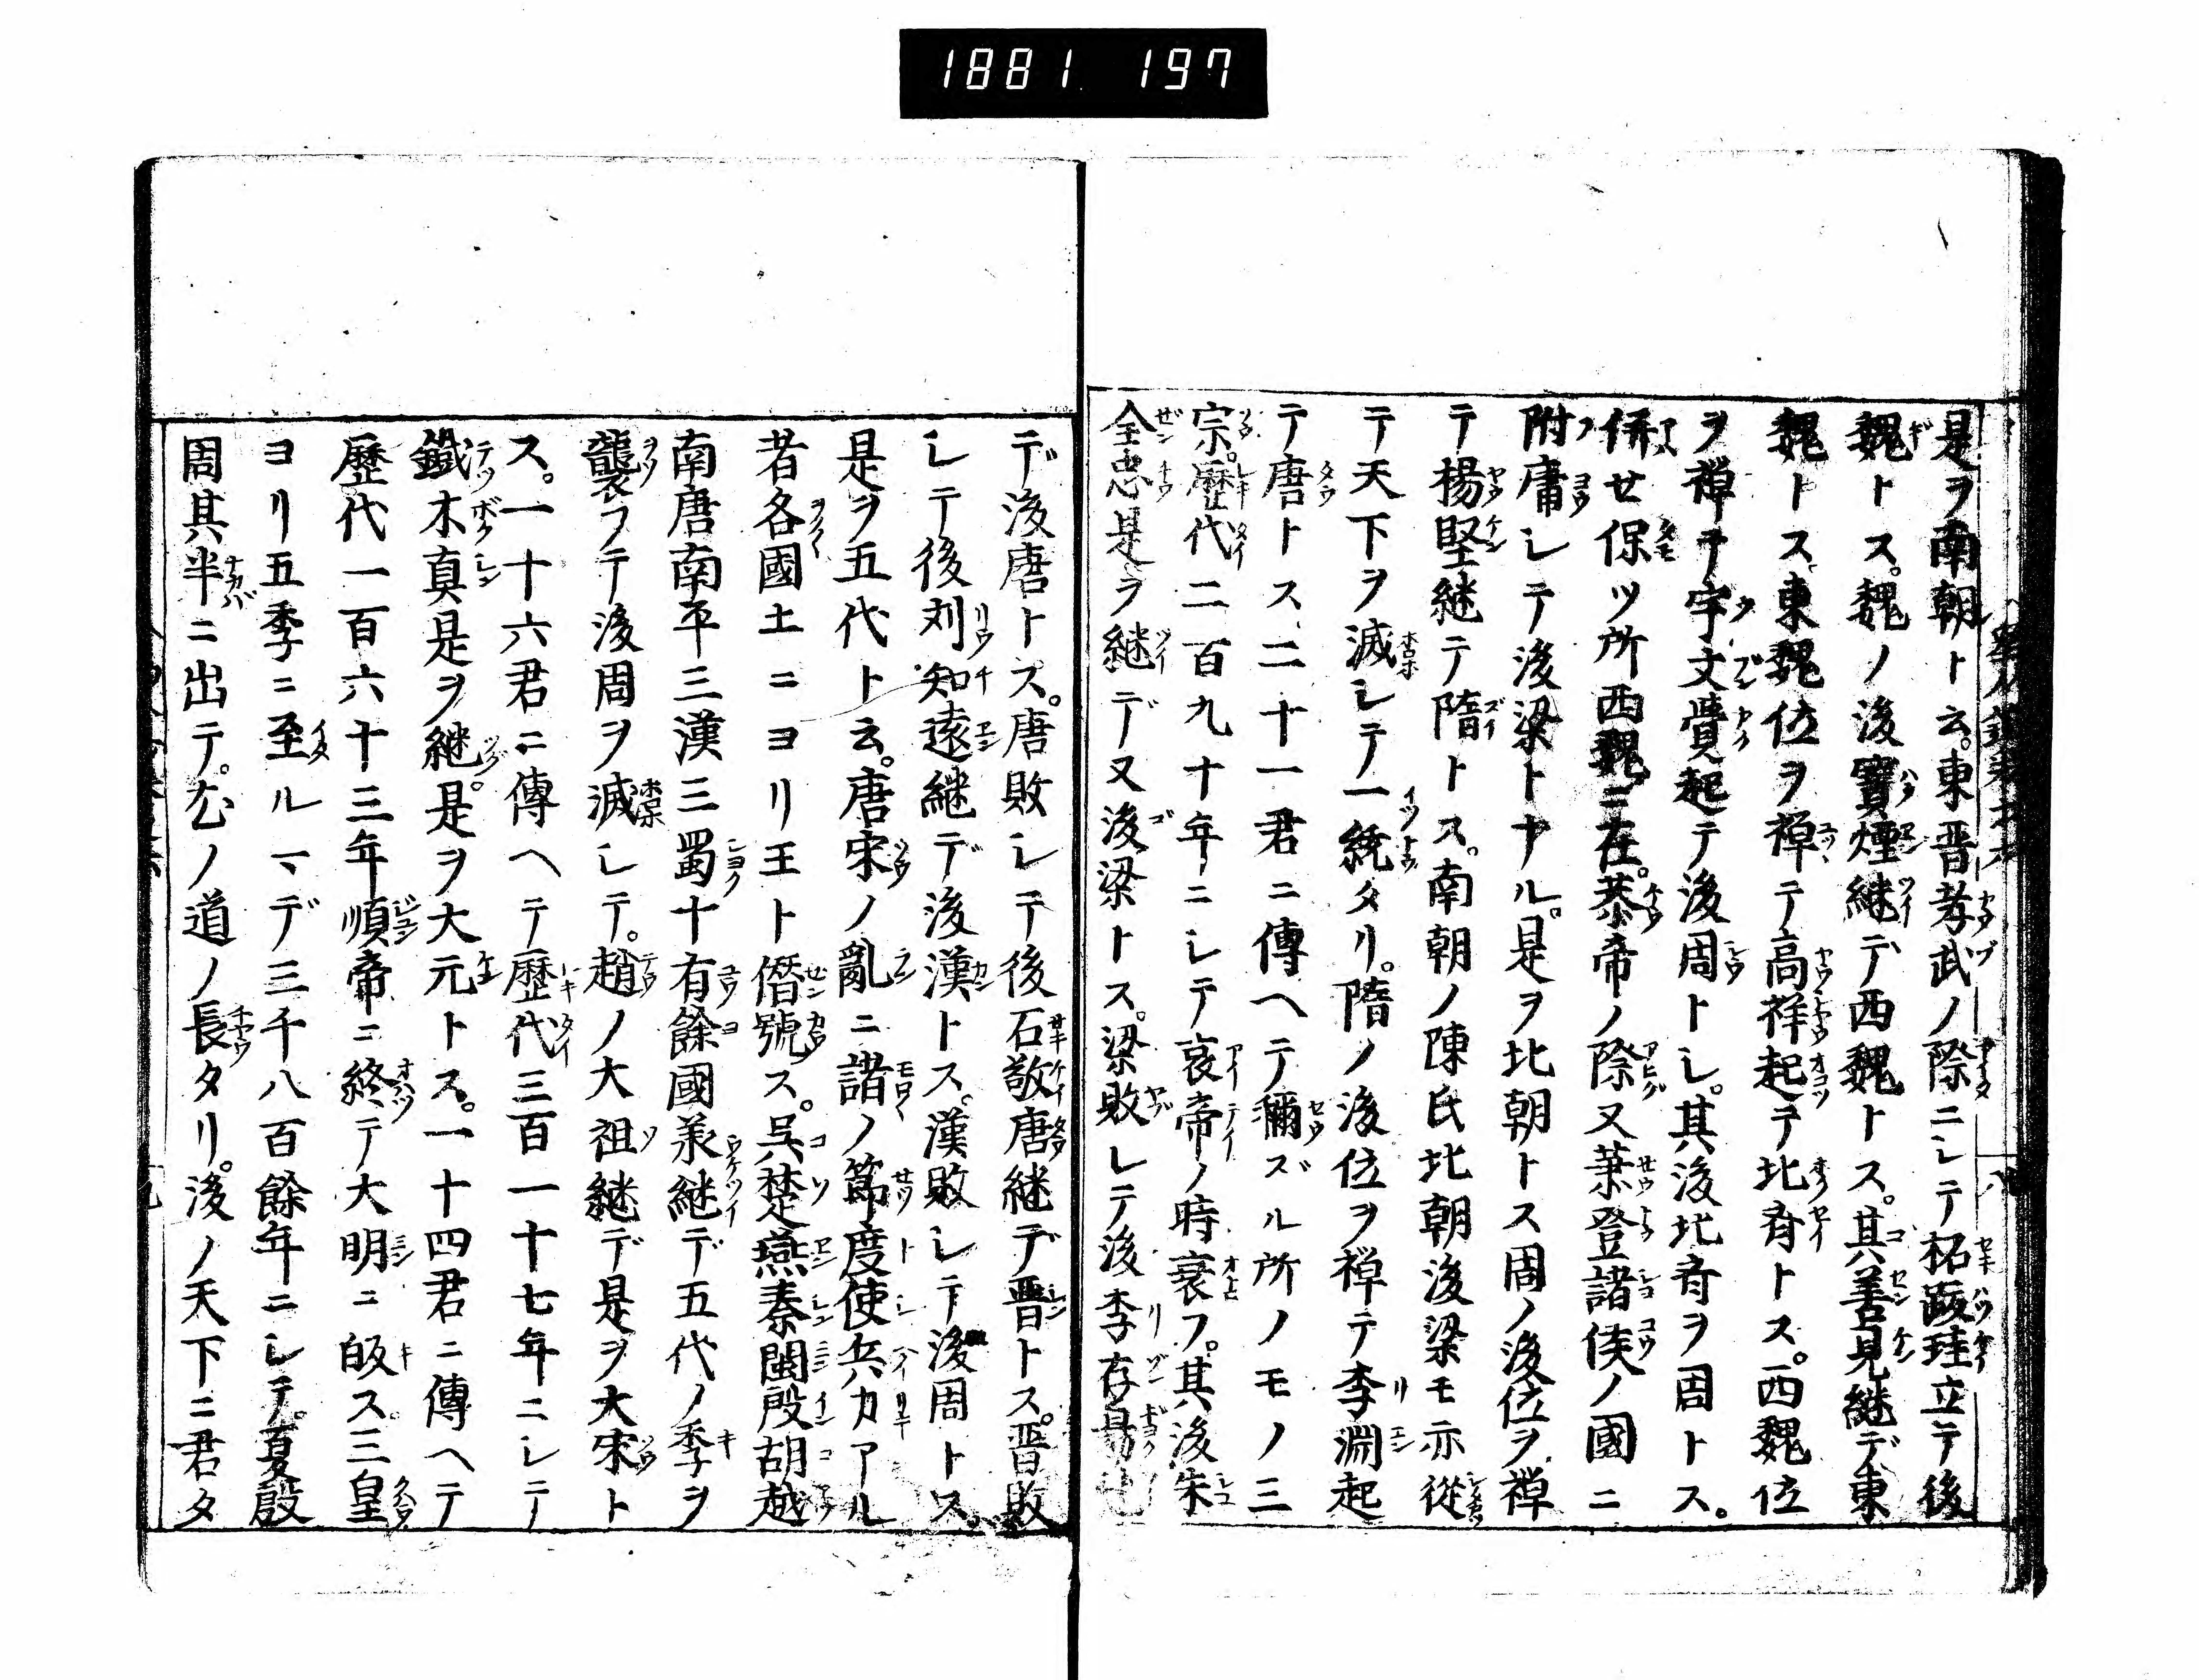 1881 197
是ヲ南朝ト云。東晋孝武ノ際ニシテ拓跋珪立テ後
魏トス。魏ノ後寳煙継デ西魏トス。其善見継デ東
魏トス。東魏位ヲ禅テ高祥起テ北斉トス。西魏位
ヲ禅テ宇文覺起テ後周トシ。其後北斉ヲ周トス。
併せ保ツ所西魏ニ在。恭帝ノ際又䒥登諸侯ノ國ニ
附庸シテ後梁トナル。是ヲ北朝トス周ノ後位ヲ禅
テ揚堅継テ隋トス。南朝ノ陳氏北朝後梁モ亦從
テ天下ヲ滅シテ一統タリ。隋ノ後位ヲ禅テ李淵起
テ唐トス、二十一君ニ傳ヘテ稱ズル所ノモノ三
宗。歴代二百九十年ニシテ哀帝ノ時衰フ。其後朱
全忠是ヲ継デ又後梁トス。梁敗レテ後李存勗
デ後唐トス。唐敗レテ後石敬唐継デ晋トス。晋敗
レテ後刘知遠継デ後漢トス。漢敗レテ後周トス。
是ヲ五代ト云。唐宋ノ亂ニ諸ノ節度使兵力アル
者各國土ニヨリ王ト僭號ス。呉楚燕秦閩殷胡越
南唐南平三漢三蜀十有餘國承継デ五代ノ季ヲ
襲フテ後周ヲ滅シテ。趙ノ大祖継デ是ヲ大宋ト
ス。一十六君ニ傳ヘテ歴代三百一十七年ニシテ
鐵木真是ヲ継。是ヲ大元トス。一十四君ニ傳ヘテ
歴代一百六十三年順帝ニ終テ大明ニ皈ス。三皇
ヨリ五季ニ至ルマデ三千八百餘年ニシテ。夏殷
周其半ニ出テ。尤ノ道ノ長タリ。後ノ天下ニ君タ